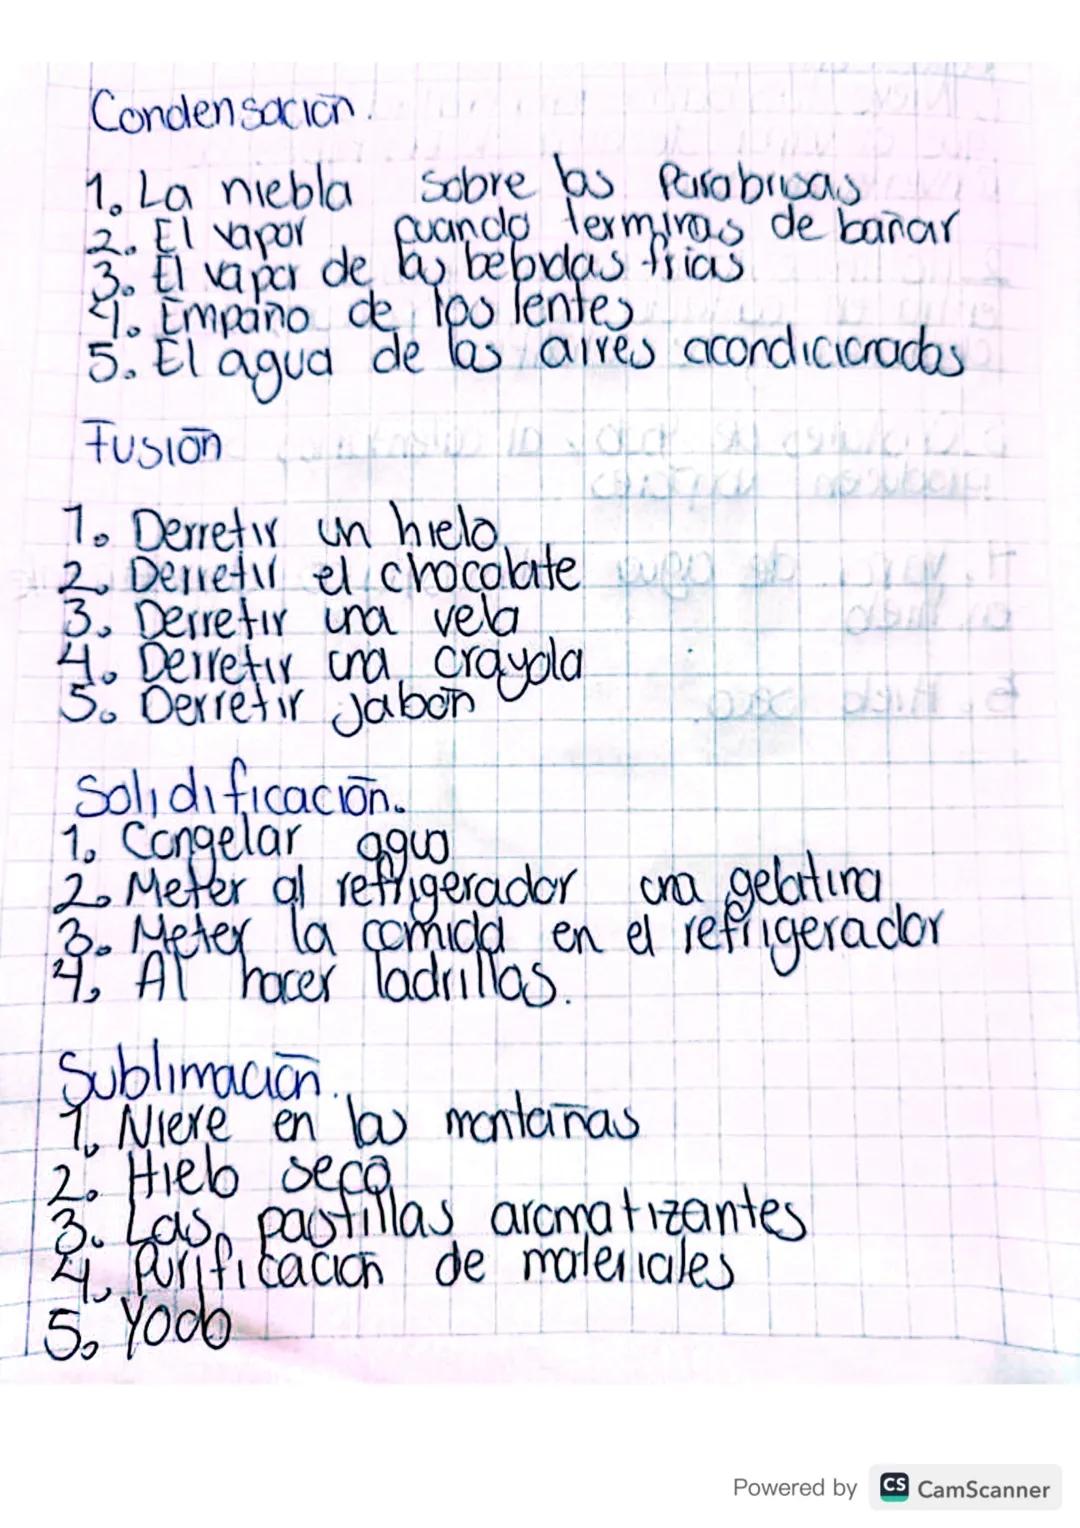 Condensación.
1. La niebla sobre los Parabrisas
2. El vapor cuando terminas de bañar
3. El vapor de las bebidas frias
4. Empaño de los lentes
5. El agua de los aires acondicionados
Fusión
1. Derretir un hielo
2. Derretir el chocolate
3. Derretir una vela
4. Derretir una crayola
5. Derretir jabón
Solidificación.
1. Congelar agua
2. Meter al refrigerador una gelatina
3. Meter la comida en el refrigerador
4. Al hacer ladrillos.
Sublimación.
1. Nieve en las montañas
2. Hielo seco
3. Las pastillas aromatizantes
4. Purificación de materiales
5. Yodo
Powered by CS CamScanner